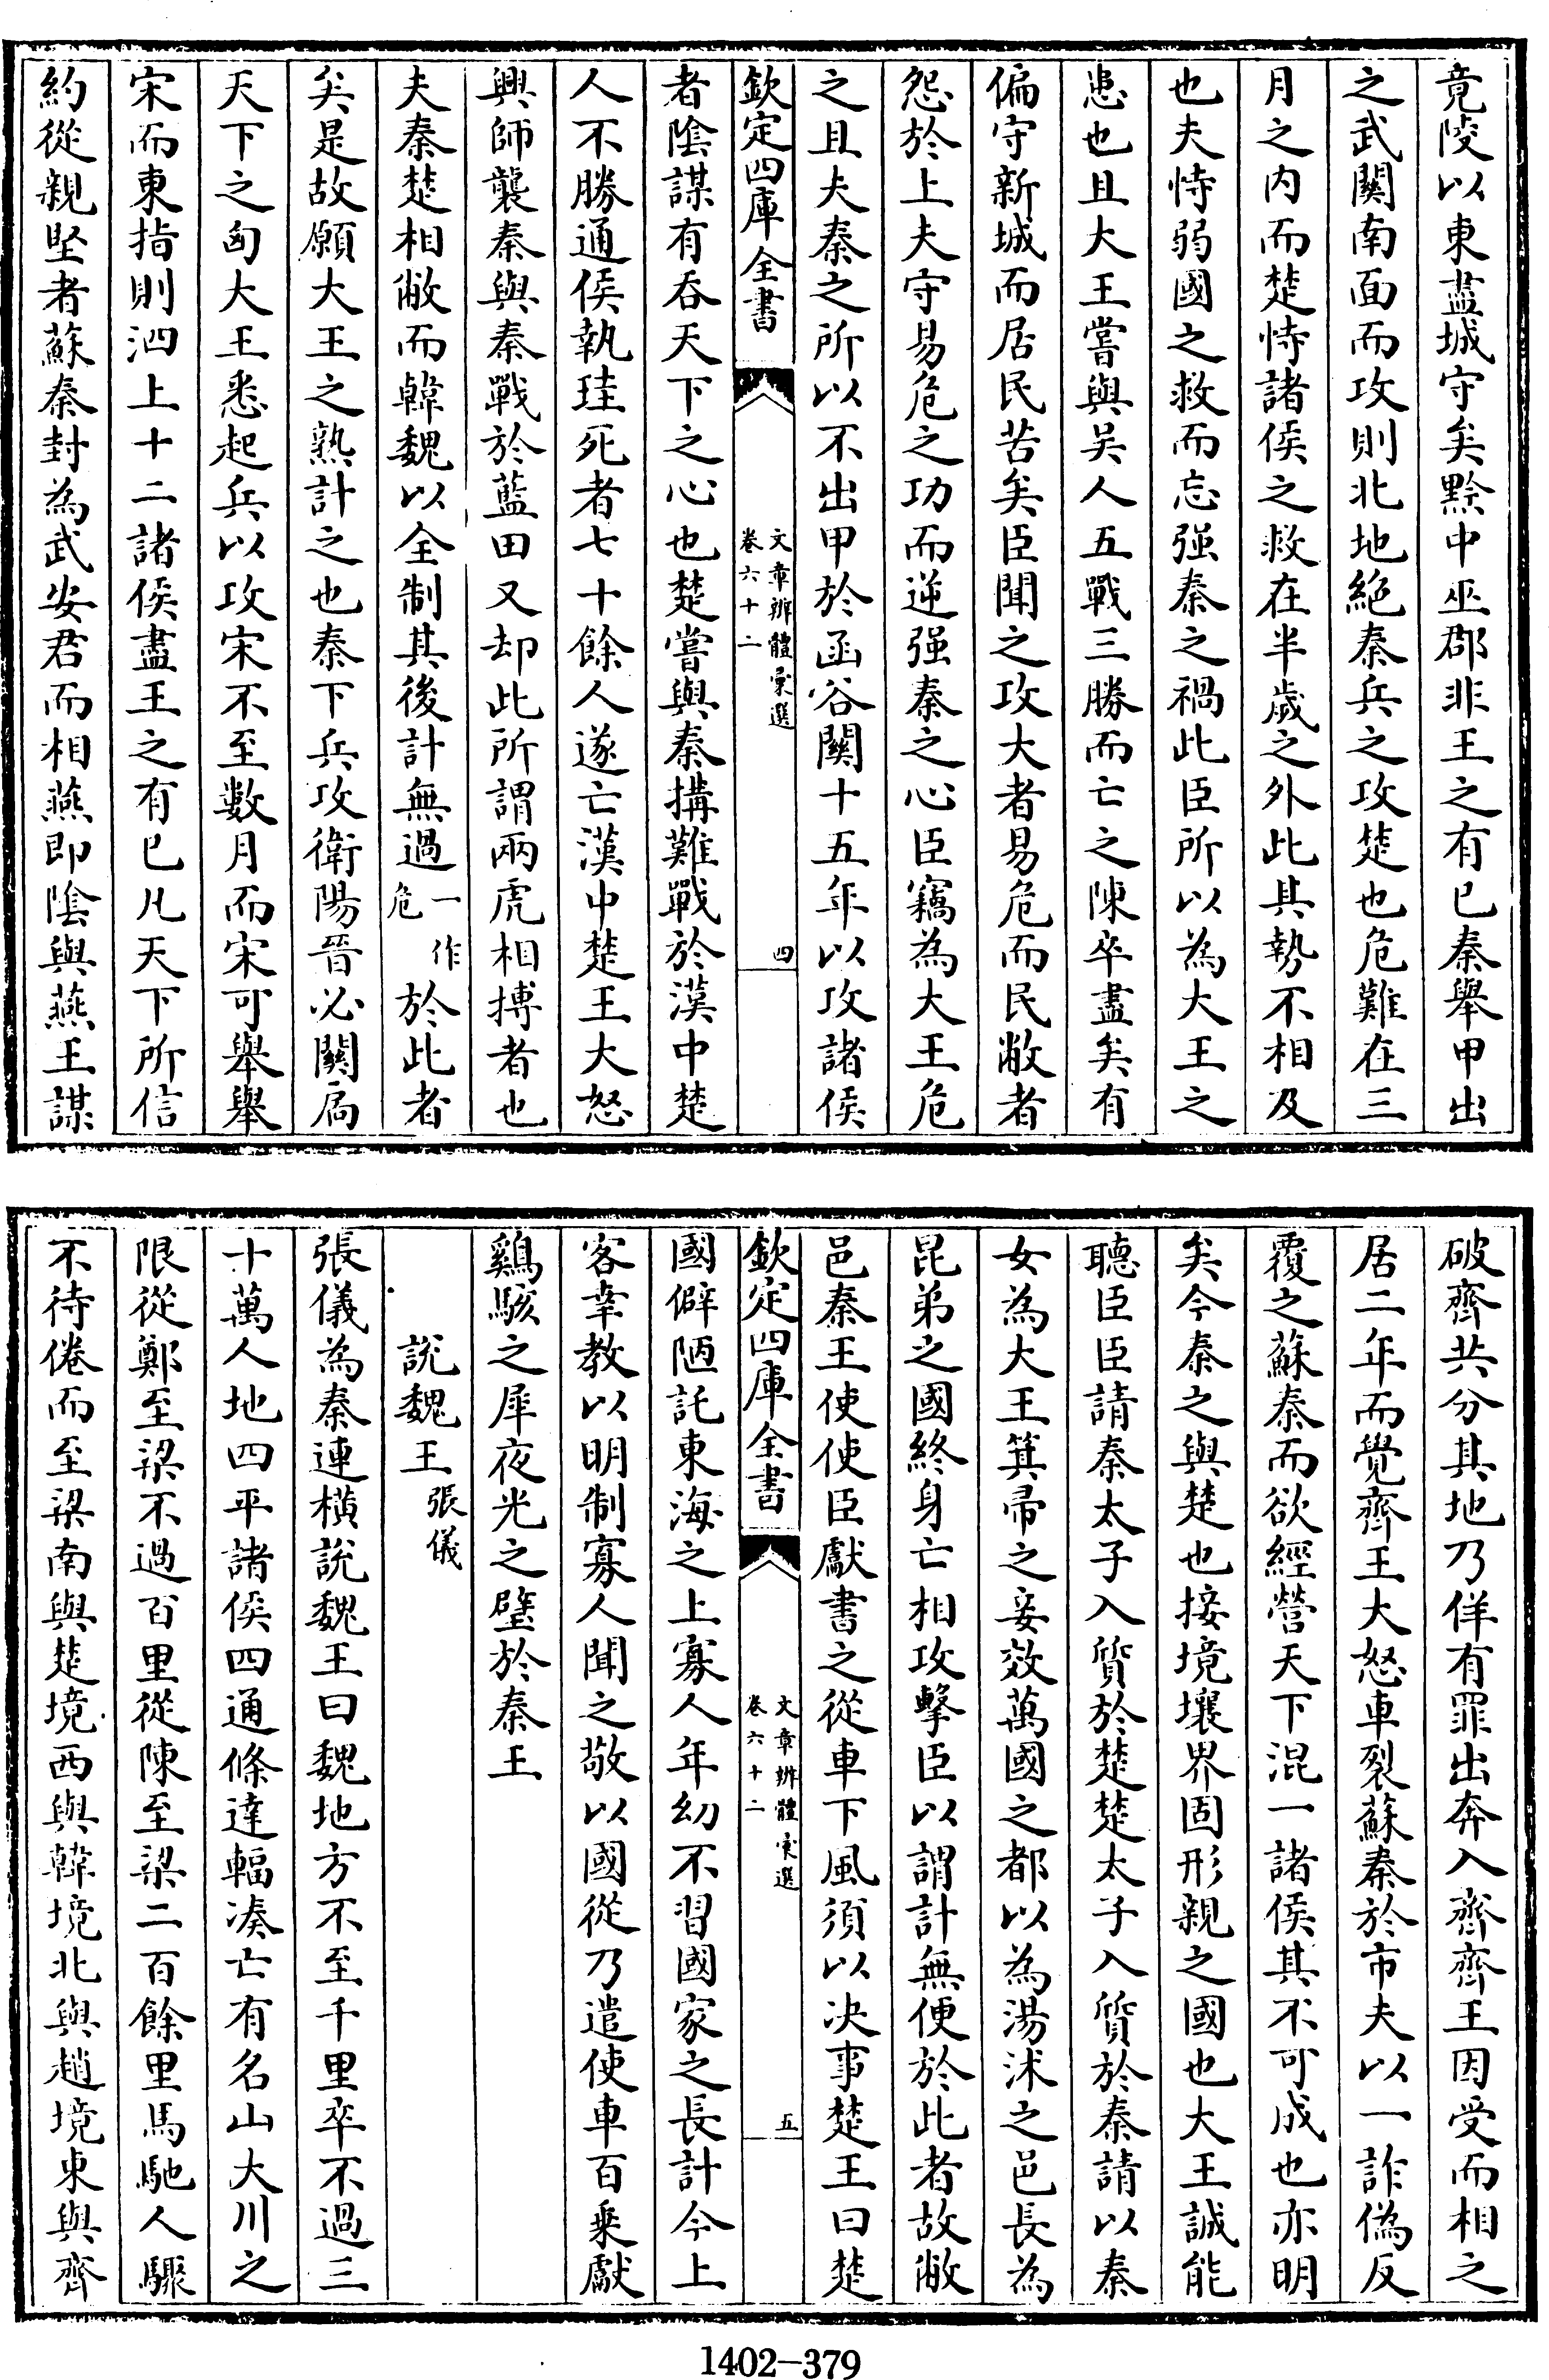 竟陵以東盡城守矣黔中巫郡非王之有已秦舉甲出
之武關南面而攻則北地絶秦兵之攻楚也危難在三
月之内而楚恃諸侯之救在半歲之外此其勢不相及
也夫恃弱國之救而忘强秦之禍此臣所以為大王之
患也且大王嘗與吴人五戰三勝而亡之陳卒盡矣有
偏守新城而居民苦矣臣聞之攻大者易危而民敝者
怨於上夫守易危之功而逆强秦之心臣竊為大王危
之且夫秦之所以不出甲於函谷關十五年以攻諸侯
欽定四庫全書
文章辨體彚選
卷六十二
四
者陰謀有吞天下之心也楚嘗與秦搆難戰於漢中楚
人不勝通侯執珪死者七十餘人遂亡漢中楚王大怒
興師襲秦與秦戰於藍田又却此所謂兩虎相搏者也
夫秦楚相敝而韓魏以全制其後計無過一作危於此者
矣是故願大王之熟計之也秦下兵攻衛陽晉必關扃
天下之匈大王悉起兵以攻宋不至數月而宋可舉舉
宋而東指則泗上十二諸侯盡王之有已凡天下所信
約從親堅者蘇秦封為武安君而相燕即陰與燕王謀
破齊共分其地乃佯有罪出奔入齊齊王因受而相之
居二年而覺齊王大怒車裂蘇秦於市夫以一詐偽反
覆之蘇秦而欲經營天下混一諸侯其不可成也亦明
矣今秦之與楚也接境壤界固形親之國也大王誠能
聽臣臣請秦太子入質於楚楚太子入質於秦請以秦
女為大王箕帚之妾效萬國之都以為湯沭之邑長為
昆弟之國終身亡相攻擊臣以謂計無便於此者故敝
邑秦王使使臣獻書之從車下風須以决事楚王曰楚
欽定四庫全書
文章辨體彚選
卷六十二
五
國僻陋託東海之上寡人年幼不習國家之長計今上
客幸教以明制寡人聞之敬以國從乃遣使車百乗獻
鷄駭之犀夜光之璧於秦王
説魏王張儀
張儀為秦連横説魏王曰魏地方不至千里卒不過三
十萬人地四平諸侯四通條達輻凑亡有名山大川之
限從鄭至梁不過百里從陳至梁二百餘里馬馳人驟
不待倦而至梁南與楚境西與韓境北與趙境東與齊
1402-379